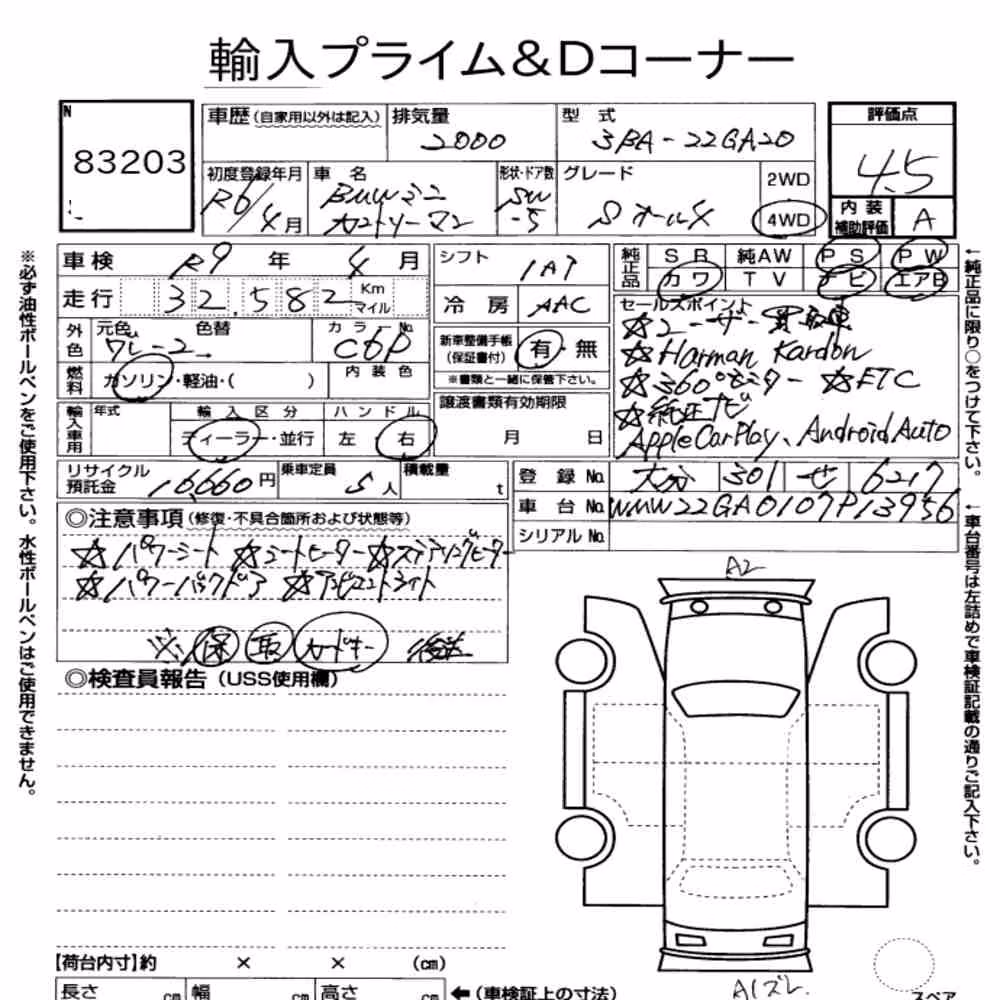 輸入プライム&Dコーナー
N
83203
車歴(自家用以外は記入) 排気量 2000 型式 3BA-22GA20
評価点 4.5
初度登録年月 R6/4月 車名 BMWミニ カントリーマン 形状・ドア数 SW -5 グレード S オール4 2WD 4WD
内装補助評価 A
車検 R9年 4月
シフト 1AT
純正品 SR 純AW PS PW
カワ TV ナビ エアB
走行 32,582 Km マイル
冷房 AAC
外色 元色 グレー 色替 カラーNo. C6P 内装色
新車整備手帳(保証書付) 有・無
※書類と一緒に保管下さい。
燃料 ガソリン・軽油・( )
輸入車用 年式 輸入区分 ディーラー・並行 ハンドル 左・右
譲渡書類有効期限 月 日
セールスポイント
☆ユーザー買取車
☆Harman Kardon
☆360°モニター ☆ETC
☆純正ナビ
AppleCarPlay、AndroidAuto
リサイクル預託金 16,660円 乗車定員 5人 積載量 t
登録No. 大分 301 せ 6217
車台No. WMW22GA0107P13956
シリアルNo.
◎注意事項(修復・不具合箇所および状態等)
☆パワーシート ☆シートヒーター ☆ステアリングヒーター
☆パワーバックドア ☆アンビエントライト
※保 取 カードキー 後送
◎検査員報告(USS使用欄)
A2
A1ズレ
スペア
【荷台内寸】約 × × (cm)
長さ cm 幅 cm 高さ cm ←(車検証上の寸法)
※必ず油性ボールペンをご使用下さい。水性ボールペンはご使用できません。
←純正品に限り○をつけて下さい。
←車台番号は左詰めで車検証記載の通りご記入下さい。